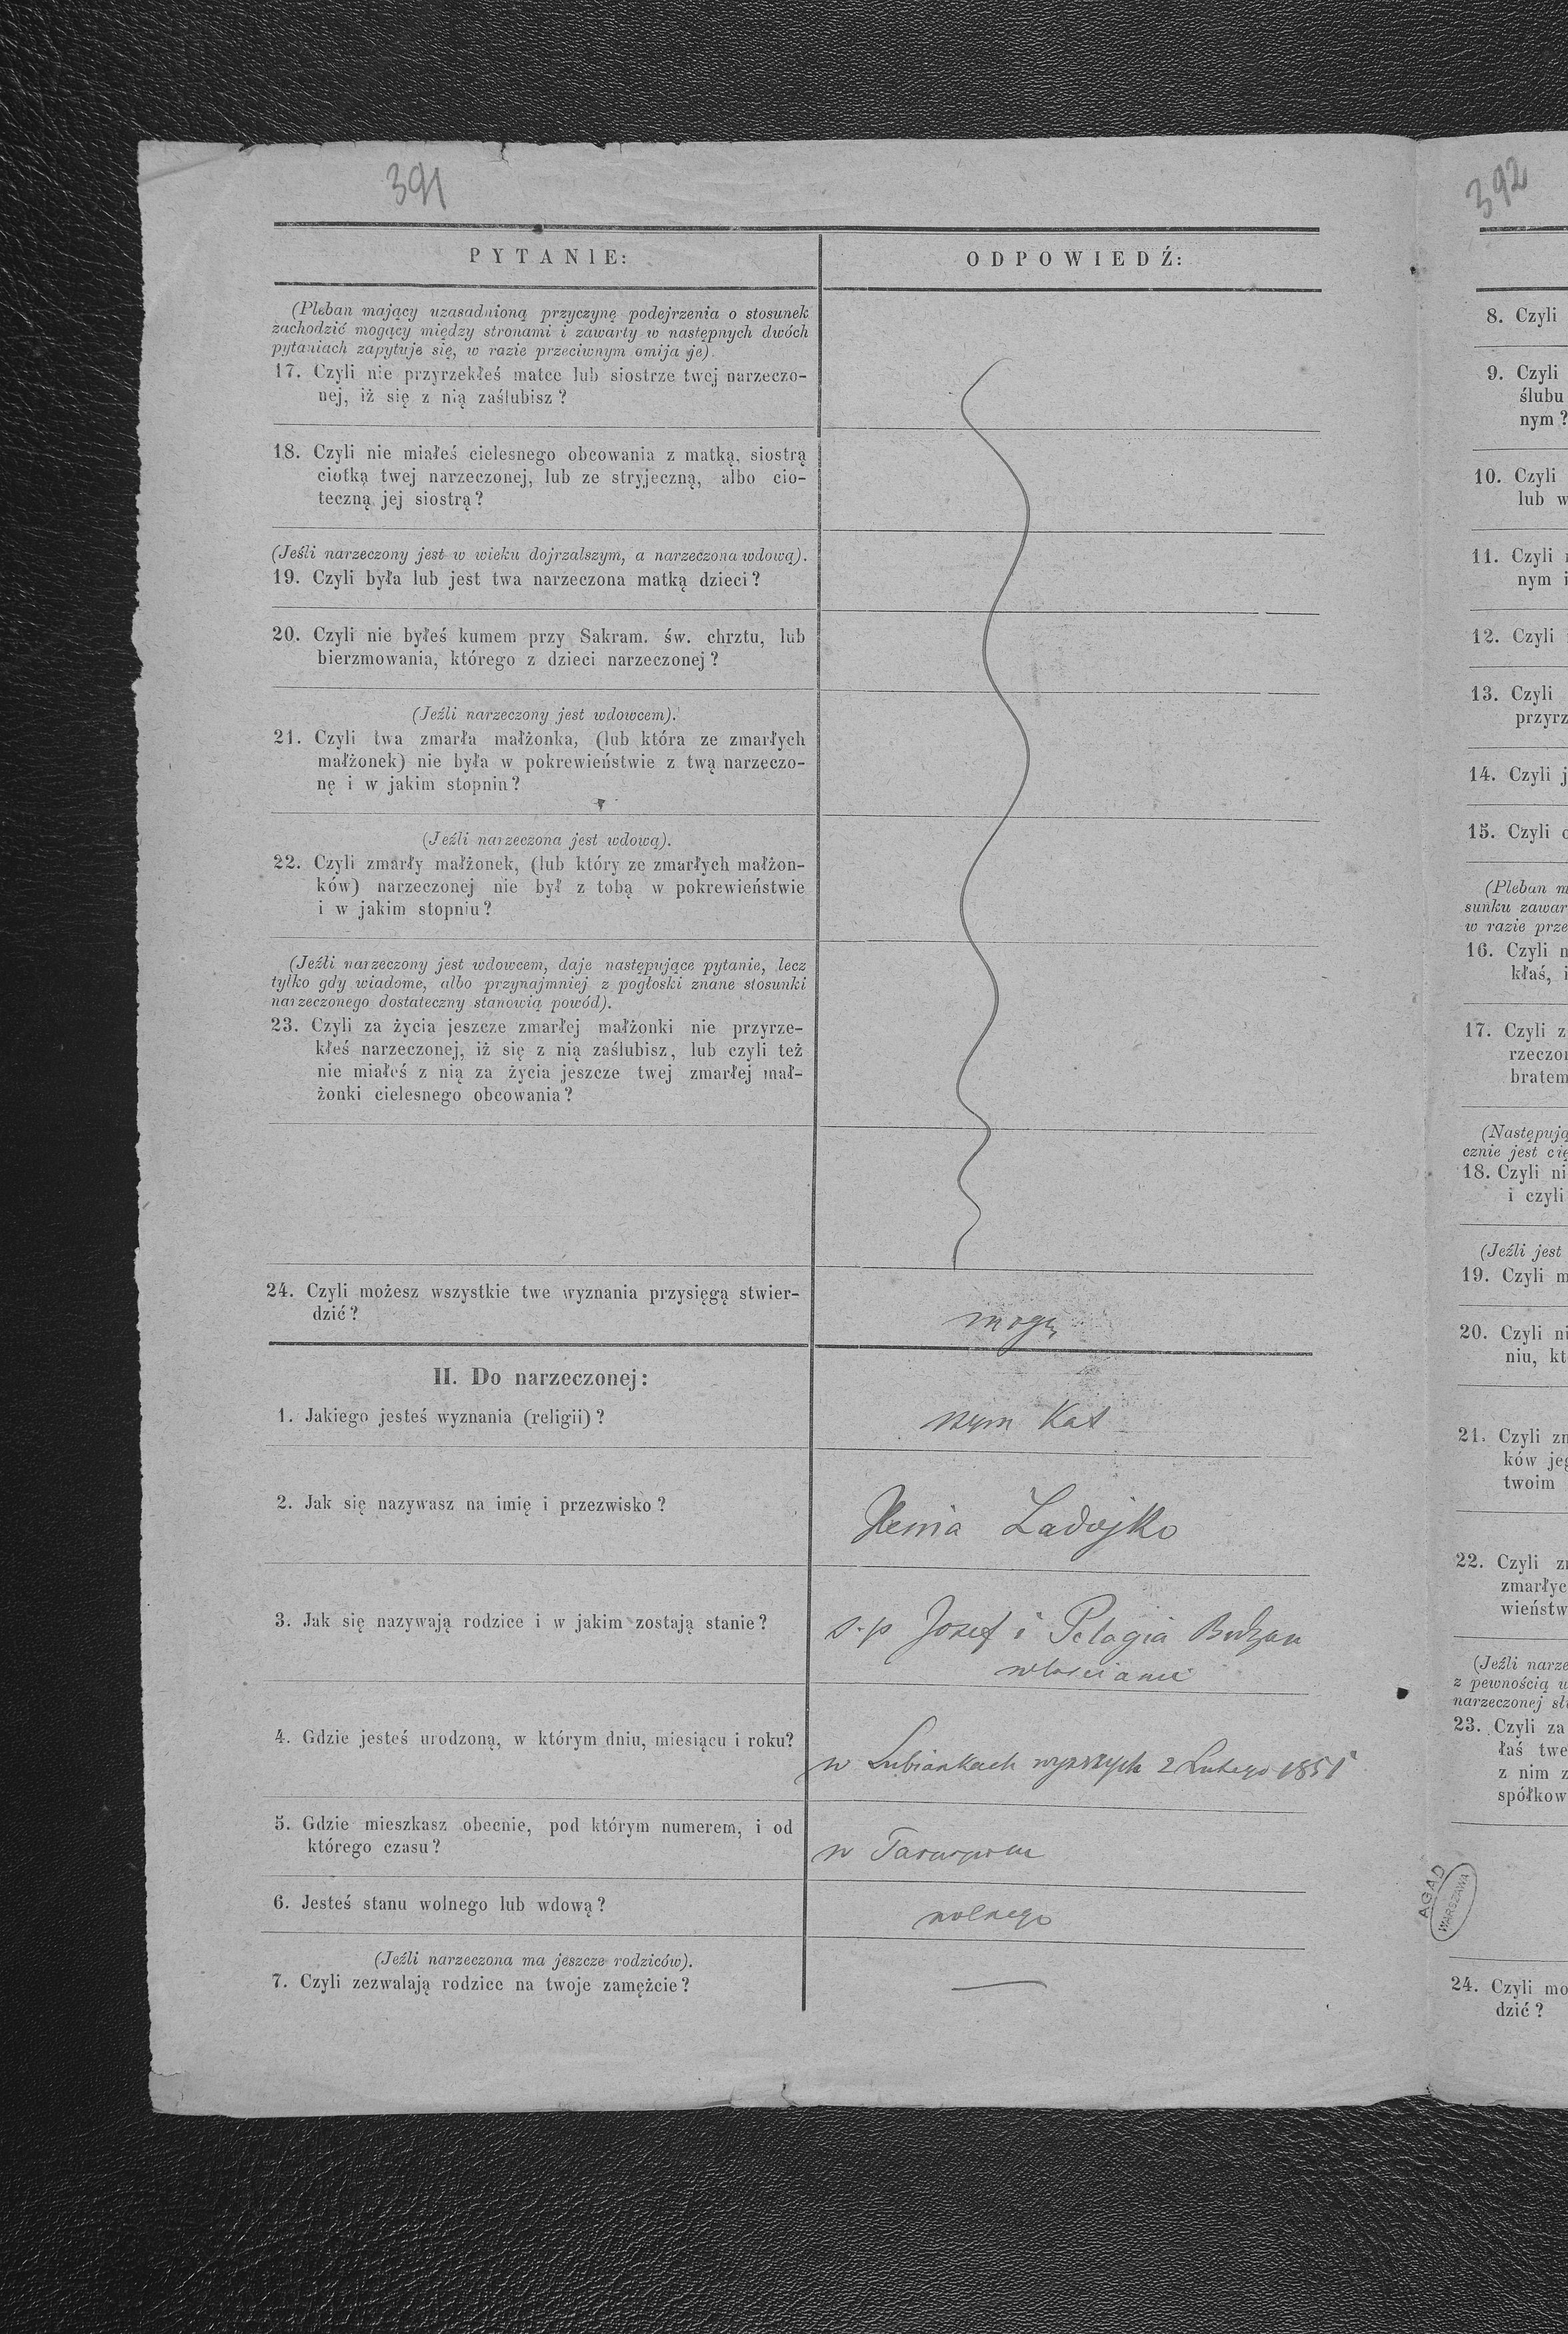 391
392
PYTANIE:
ODPOWIEDŹ:
(Pleban mający uzasadnioną przyczynę podejrzenia o stosunek
zachodzić mogący między stronami i zawarty w następnych dwóch
pytaniach zapytuje się, w razie przeciwnym omija je).
17. Czyli nie przyrzekłeś matce lub siostrze twej narzeczo-
nej, iż się z nią zaślubisz?
18. Czyli nie miałeś cielesnego obcowania z matką, siostrą
ciotką twej narzeczonej, lub ze stryjeczną, albo cio-
teczną jej siostrą?
(Jeśli narzeczony jest w wieku dojrzalszym, a narzeczona wdową).
19. Czyli była lub jest twa narzeczona matką dzieci?
20. Czyli nie byłeś kumem przy Sakram. św. chrztu, lub
bierzmowania, którego z dzieci narzeczonej?
(Jeźli narzeczony jest wdowcem).
21. Czyli twa zmarła małżonka, (lub która ze zmarłych
małżonek) nie była w pokrewieństwie z twą narzeczo-
nę i w jakim stopnin?
(Jeźli narzeczona jest wdową).
22. Czyli zmarły małżonek, (lub który ze zmarłych małżon-
ków) narzeczonej nie był z tobą w pokrewieństwie
i w jakim stopniu?
(Jeźli narzeczony jest wdowcem, daje następujące pytanie, lecz
tylko gdy wiadome, albo przynajmniej z pogłoski znane stosunki
narzeczonego dostateczny stanowią powód).
23. Czyli za życia jeszcze zmarłej małżonki nie przyrze-
kłeś narzeczonej, iż się z nią zaślubisz, lub czyli też
nie miałeś z nią za życia jeszcze twej zmarłej mał-
żonki cielesnego obcowania?
24. Czyli możesz wszystkie twe wyznania przysięgą stwier-
dzić?
mogę
II. Do narzeczonej:
1. Jakiego jesteś wyznania (religii)?
rzym Kat
2. Jak się nazywasz na imię i przezwisko?
Xenia Ladojko
3. Jak się nazywają rodzice i w jakim zostają stanie?
s.p Jozef i Pelagia
włościanie
4. Gdzie jesteś urodzoną, w którym dniu, miesiącu i roku?
w Lubiankach wyzszych 2 Lutego 1851
5. Gdzie mieszkasz obecnie, pod którym numerem, i od
którego czasu?
w
6. Jesteś stanu wolnego lub wdową?
wolnego
(Jeźli narzeczona ma jeszcze rodziców).
7. Czyli zezwalają rodzice na twoje zamężcie?
8. Czyli
9. Czyli
ślubu
nym?
10. Czyli
lub w
11. Czyli
nym i
12. Czyli
13. Czyli
przyrz
14. Czyli j
15. Czyli
(Pleban m
sunku zawar
w razie prze
16. Czyli n
kłaś, i
17. Czyli z
rzeczon
bratem
(Następują
cznie jest cię
18. Czyli ni
i czyli
(Jeźli jest
19. Czyli m
20. Czyli ni
niu, kt
21. Czyli zm
ków jeg
twoim
22. Czyli zm
zmarłyc
wieństw
(Jeźli narze
z pewnością w
narzeczonej sł
23. Czyli za
łaś twe
z nim z
spółkow
AGAD
WARSZAWA
24. Czyli mo
dzić?